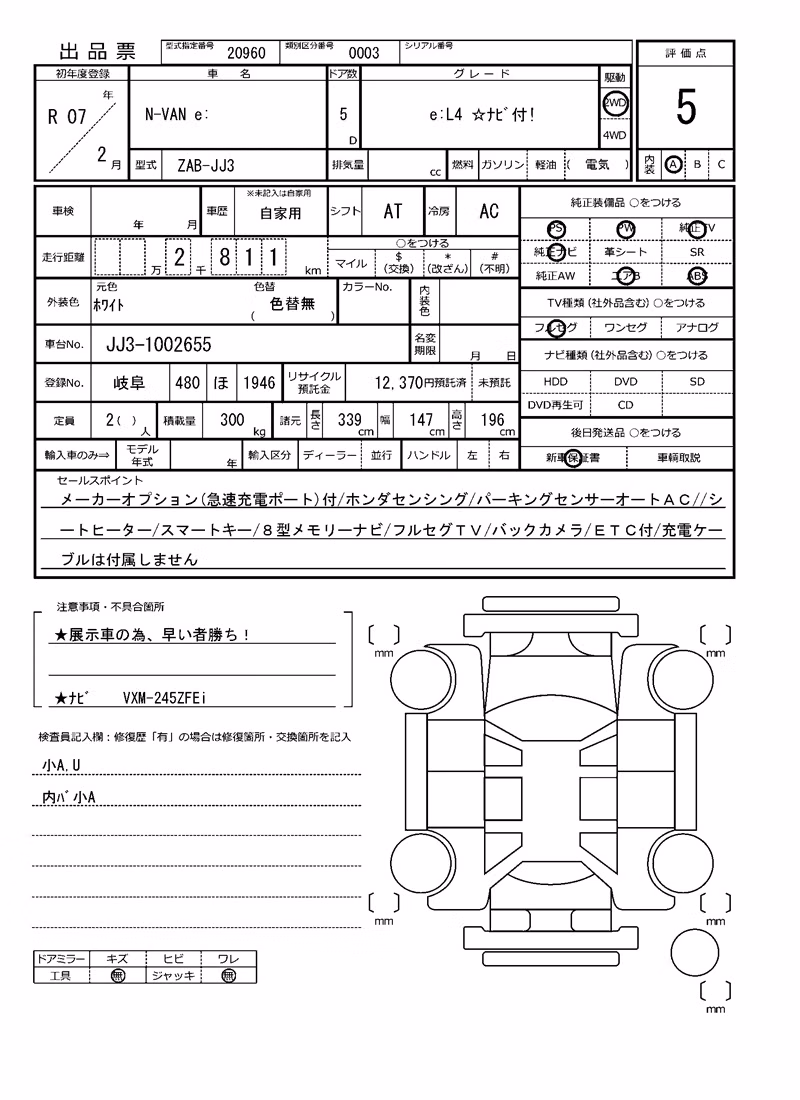 出品票 型式指定番号 20960 類別区分番号 0003 シリアル番号
評価点
初年度登録 車名 ドア数 グレード 駆動
R 07 年 2 月 N-VAN e: 5 D e:L4 ☆ﾅﾋﾞ付! 2WD 4WD
5
型式 ZAB-JJ3 排気量 cc 燃料 ガソリン 軽油 ( 電気 )
内装 A B C
車検 年 月 車歴 ※未記入は自家用 自家用 シフト AT 冷房 AC
純正装備品 ○をつける
PS PW 純正TV
純正ナビ 革シート SR
純正AW エアB ABS
走行距離 万 2 千 8 1 1 km
○をつける
マイル $(交換) *(改ざん) #(不明)
外装色 元色 ﾎﾜｲﾄ 色替 ( 色替無 ) カラーNo. 内装色
TV種類(社外品含む)○をつける
フルセグ ワンセグ アナログ
車台No. JJ3-1002655 名変期限 月 日
ナビ種類(社外品含む)○をつける
HDD DVD SD
DVD再生可 CD
登録No. 岐阜 480 ほ 1946 リサイクル預託金 12,370円預託済 未預託
定員 2( )人 積載量 300 kg 諸元 長さ 339 cm 幅 147 cm 高さ 196 cm
後日発送品 ○をつける
新車保証書 車輌取説
輸入車のみ⇒ モデル年式 年 輸入区分 ディーラー 並行 ハンドル 左 右
セールスポイント
メーカーオプション(急速充電ポート)付/ホンダセンシング/パーキングセンサーオートＡＣ//シ
ートヒーター/スマートキー/８型メモリーナビ/フルセグＴＶ/バックカメラ/ＥＴＣ付/充電ケー
ブルは付属しません
注意事項・不具合箇所
★展示車の為、早い者勝ち！
★ﾅﾋﾞ VXM-245ZFEi
検査員記入欄：修復歴「有」の場合は修復箇所・交換箇所を記入
小A,U
内ﾊﾞ小A
ドアミラー キズ ヒビ ワレ
工具 無 ジャッキ 無
mm
mm
mm
mm
mm